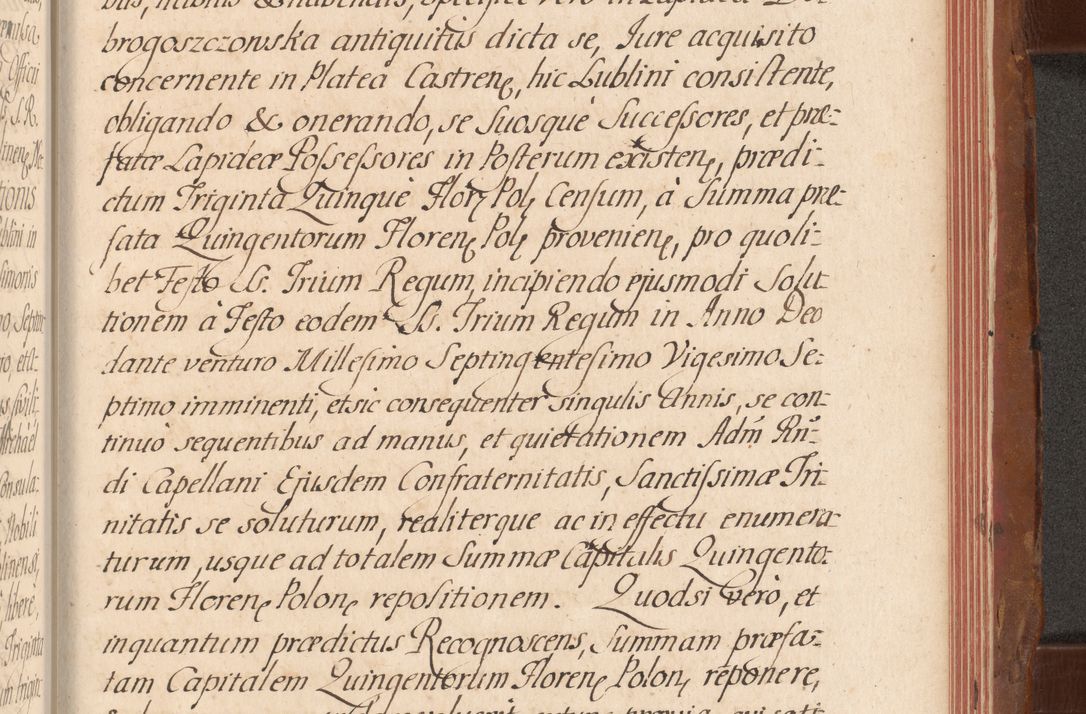 brogoszczowska antiquitus dicta se, Jure acquisito
concernente in Platea Castren, hic Lublini consistente,
obligando & onerando, se Suosque Successores, et præ=
fatæ Lapideæ Possessores in Posterum existen, prædi=
ctum Triginta Quinquè Flor Pol Censum, à Summa præ=
fata Quingentorum Floren Pol provenien, pro quoli=
bet Festo SS. Trium Regum, incipiendo ejusmodi Solu=
tionem à Festo eodem SS. Trium Regum in Anno Deo
dante venturo Millesimo Septingentesimo Vigesimo Se=
ptimo imminenti, et sic consequenter singulis Annis, se con=
tinuò sequentibus ad manus, et quietationem Adm Rn=
di Capellani Ejusdem Confraternitatis, Sanctissimæ Tri=
nitatis se soluturum, realiterque ac in effectu enumera=
turum, usque ad totalem Summæ Capitalis Quingento=
rum Floren Polon repositionem. Quodsi verò, et
inquantum prædictus Recognoscens, Summam præfa=
tam Capitalem Quingentorum Floren Polon, reponere,